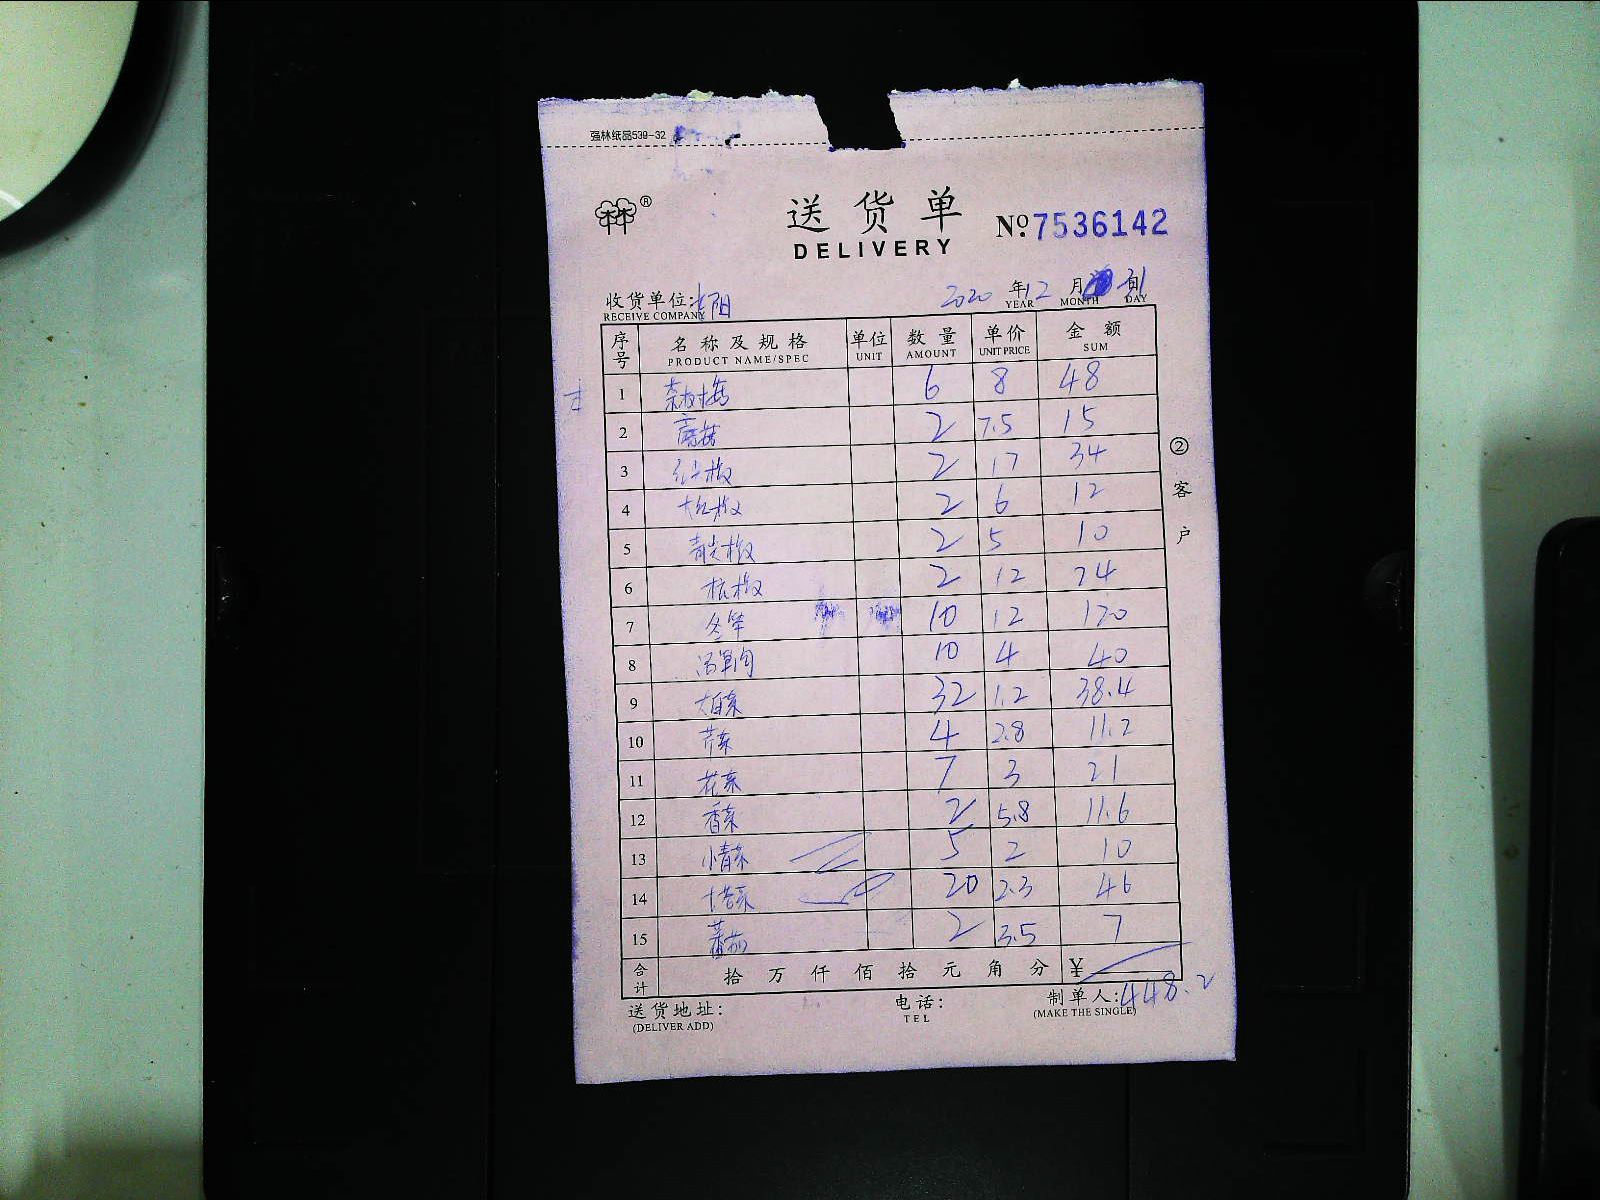 强林纸品539-32
林林®
送货单
DELIVERY
Nº:7536142
收货单位:阳
RECEIVE COMPANY
2020 年 12 月 31 日
YEAR MONTH DAY
序号 名称及规格 单位 数量 单价 金额
PRODUCT NAME/SPEC UNIT AMOUNT UNIT PRICE SUM
1 茶树菇 6 8 48
2 蘑菇 2 7.5 15
3 红椒 2 17 34
4 大红椒 2 6 12
5 青尖椒 2 5 10
6 杭椒 2 12 24
7 冬笋 10 12 120
8 10 4 40
9 大白菜 32 1.2 38.4
10 芹菜 4 2.8 11.2
11 花菜 7 3 21
12 香菜 2 5.8 11.6
13 小青菜 5 2 10
14 菜 20 2.3 46
15 蕃茄 2 3.5 7
合计 拾 万 仟 佰 拾 元 角 分 ¥
448.2
送货地址: 电话: 制单人:
(DELIVER ADD) TEL (MAKE THE SINGLE)
②客户